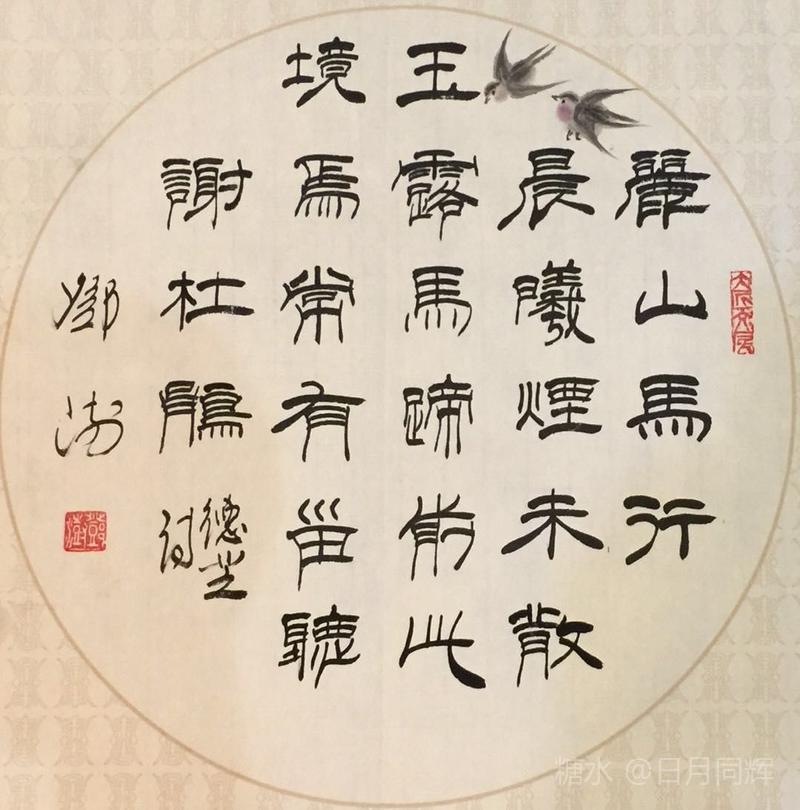 麗山馬行
晨曦煙未散
玉露馬蹄前此
境焉常有聽
謝杜鵑
德芝詩
鄧澍
鄧澍
糖水 @日月同辉